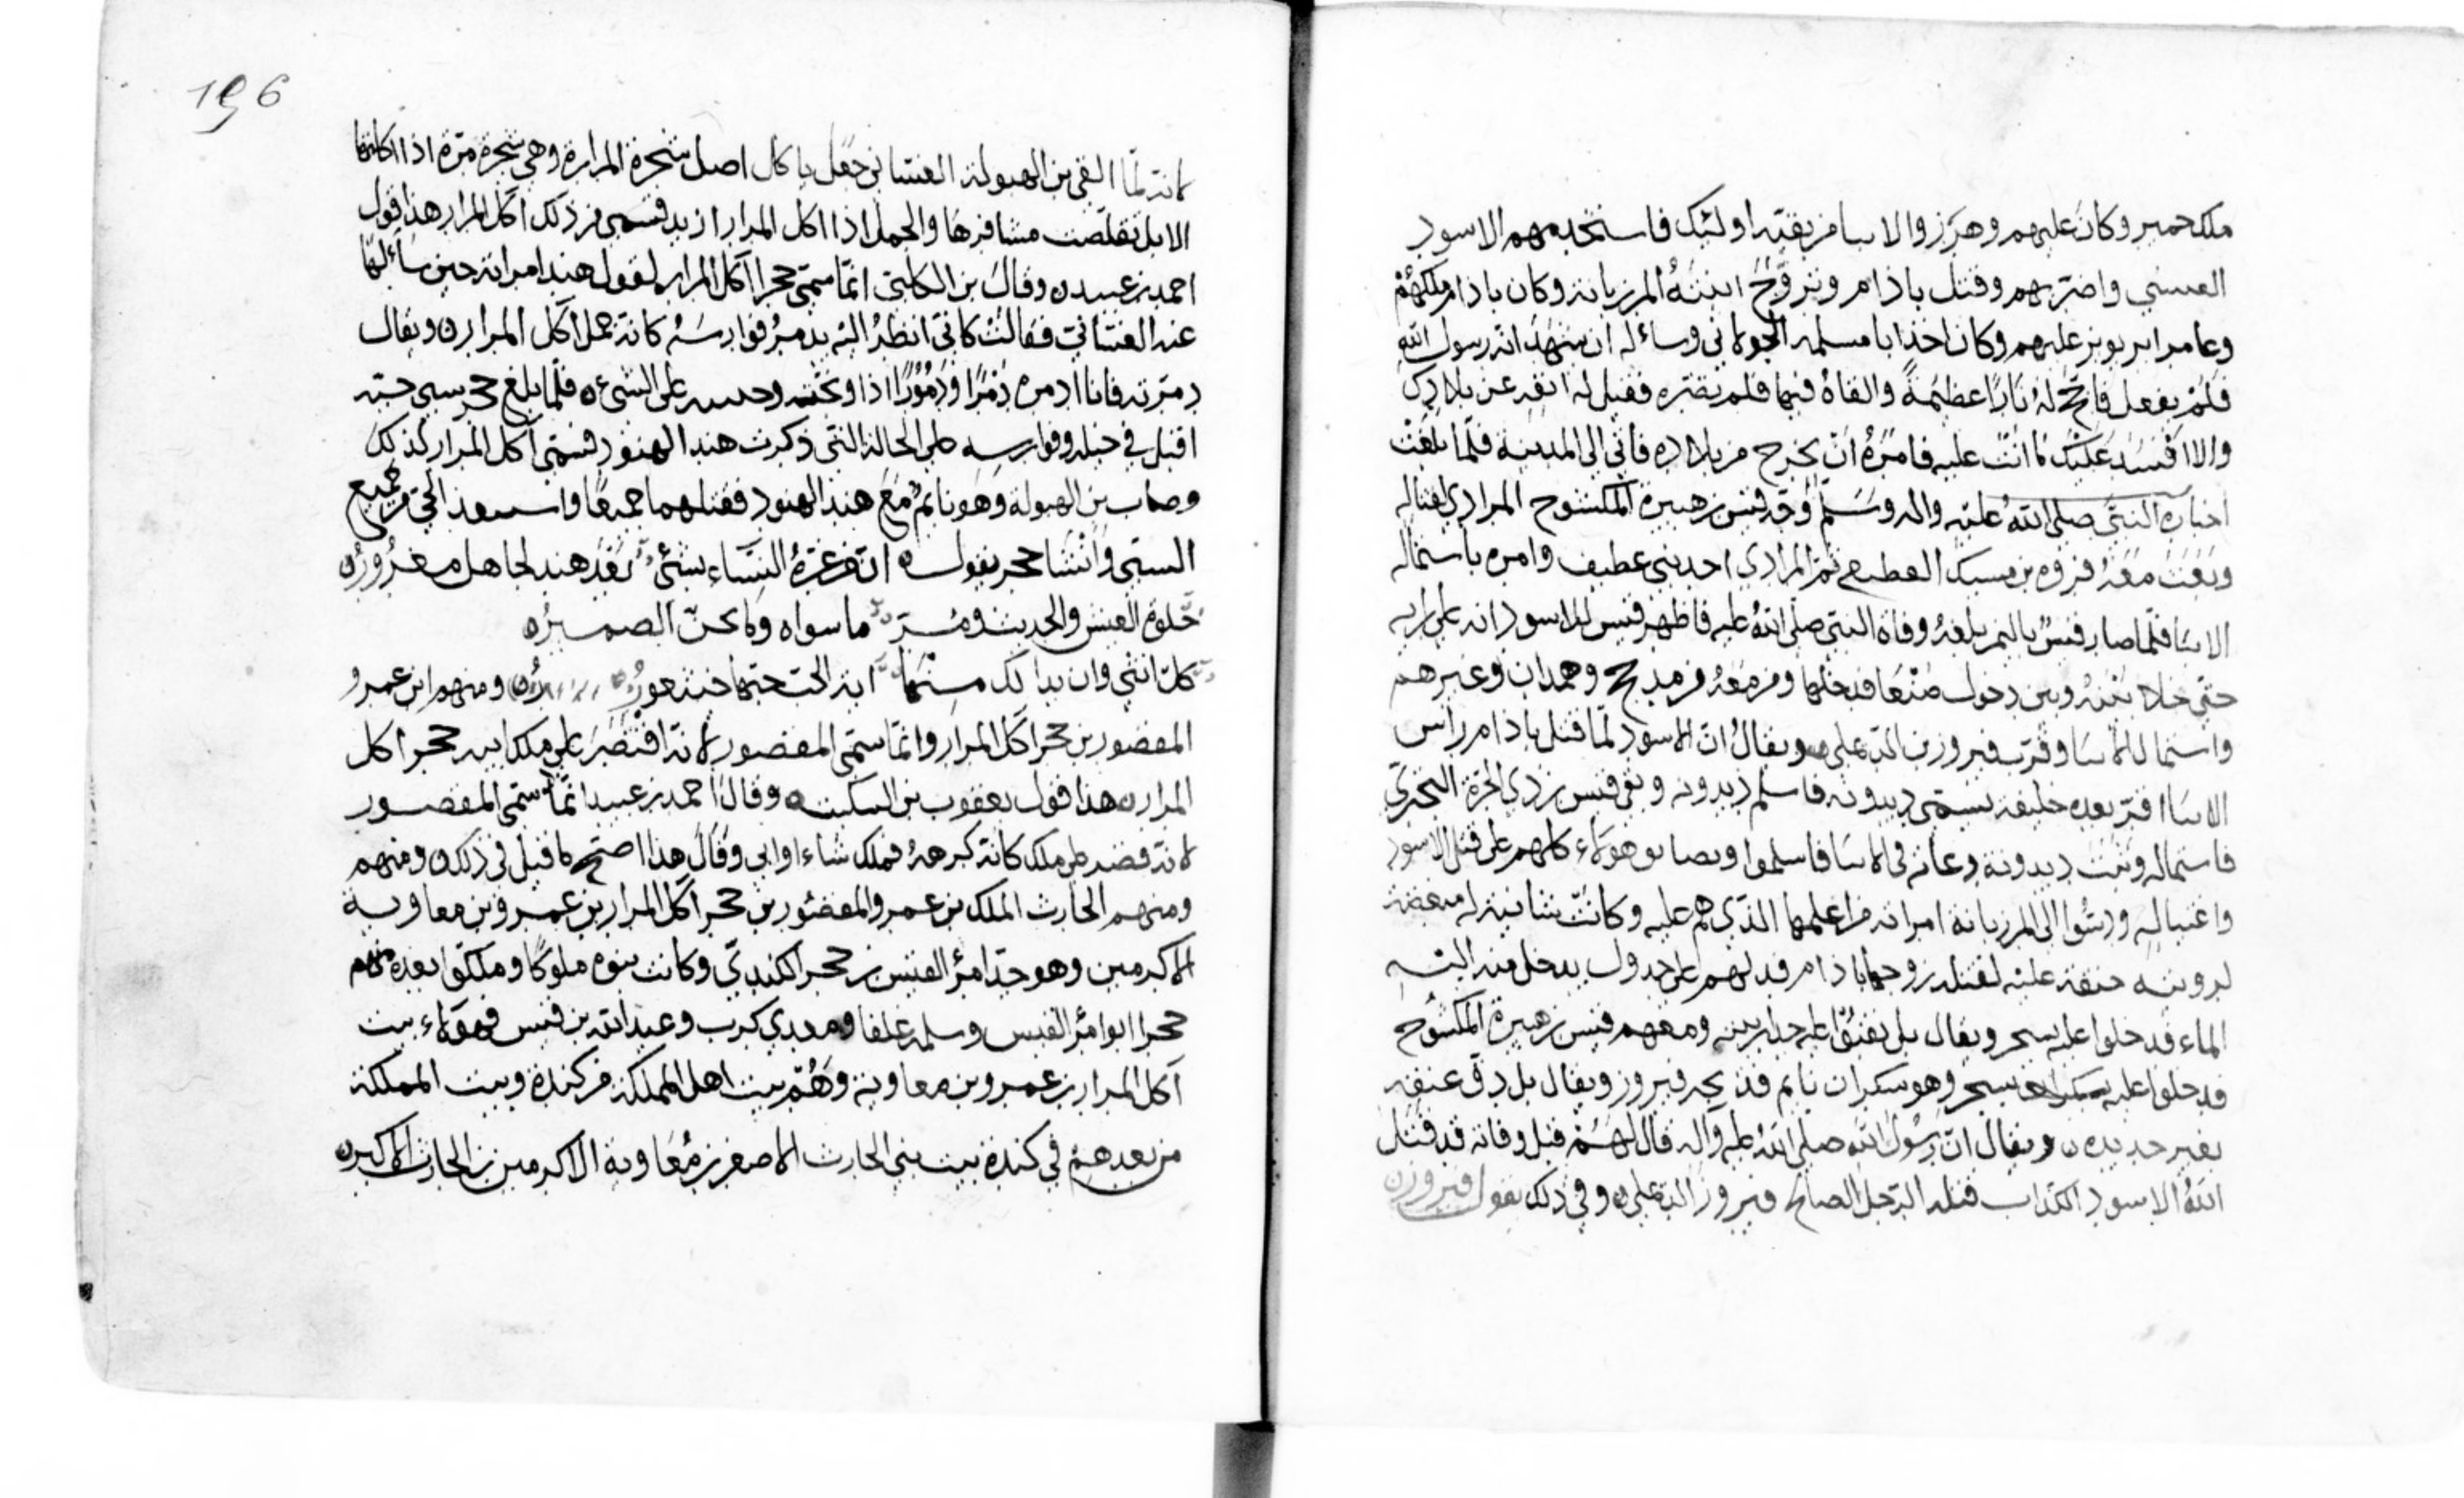 ملك حمير وكان عليهم وهرز والابنا من بقية اولئك فاستخدمهم الاسود
العنسي واضربهم وقتل باذام وتزوج ابنته المرزبانة وكان باذام ملكهم
وعامر ابرويز عليهم وكان اخذ ابا مسلمه الخولاني وساءله ان يشهد انه رسول الله
فلم يفعل فاجج له نارًا عظيمةً والقاه فيها فلم تضره فقيل له انفه عن بلادك
والا افسد عليك ما انت عليه فامره ان يخرج من بلاده فاتى الى المدينة فلما بلغت
اخباره النبي صلى الله عليه واله وسلم وجه قيس بن هبيرة المكشوح المرادي لقتاله
وبعث معه فروه بن مسيك ثم المرادي احد بني عطيف وامره باستماله
الابنا فلما صار قيس باليمن بلغه وفاة النبي صلى الله عليه فاظهر قيس للاسود انه على رايه
حتى خلا بينه وبين دخول صنعا فدخلها ومن معه من مذحج وهمدان وغيرهم
واستمال الابنا وقرب فيروز بن الديلمي ويقال ان الاسود لما قتل باذام راس
الابنا اقر بعده خليفة يسمى ديدويه فاسلم ديدويه ولقى قيس بن ذي الجرة
فاستماله وبثت ديدوية دعاته في الابنا فاسلموا هؤلاء كلهم على قتل الاسود
واغتياله ودسوا الى المرزبانة امراته من اعلمها الذي هم عليه وكانت شانية له مبغضة
لرويته حنقة عليه لقتله زوجها باذام فدلتهم على جدول يدخل منه اليه
الماء فدخلوا عليه سحر ويقال بل نقبوا عليه جدار بيته ومعهم قيس بن هبيرة المكشوح
فدخلوا عليه سحر وهو سكران نايم فذبحه فيروز ويقال بل دق عنقه
بغير حديده ويقال ان رسول الله صلى الله عليه وآله قال لهم قبل وفاته قد قتل
الله الاسود الكذاب قتله الرجل الصالح فيروز الديلمي وفي ذلك يقول فيروز
196
لانه لما القى بن الهبولة الغساني جعل ياكل اصل شجرة المرارة وهي شجرة مرة اذا اكلتها
الابل تقلصت مشافرها والجمل اذا اكل المرار ازبد فسمي من ذلك اكل المرار هذا قول
احمد بن عبيد وقال بن الكلبي انما سمي حجرا آكل المرار لقول هند امراته حين سألها
عنه الغساني فقالت كاني انظر اليه يدمر فوارسه كانه جمل آكل المرار ويقال
دمرته فانا ادمره دمرًا ودمورًا اذا وبخته على الشيء فلما بلغ حجر سبي
اقبل في خيله وفوارسه على الحالة التي ذكرت هند الهنود فسمي آكل المرار لذلك
بن الهبولة وهو نايم مع هند الهنود فقتلهما جميعًا الحي من جميع
السبي وانشا حجر يقول ان من غره النساء بشيء بعد هند لجاهل مغرور
حلوة العين والحديث ومر ما سواه الضمير
كل انثى وان بدا لك منها اية الحب حبها خيتعور ومنهم ابن عمرو
المقصور بن حجر آكل المرار وانما سمي المقصور لانه اقتصر على ملك ابيه حجر اكل
المرار هذا قول يعقوب بن السكيت وقال احمد بن عبيد انما سمي المقصور
لانه قصر على ملك كانه كرهه فملك شاء او ابى وقال هذا اصح ما قيل في ذلك ومنهم
ومنهم الحارث الملك بن عمرو المقصور بن حجر آكل المرار بن عمرو بن معاوية
الاكرمين وهو جد امرؤ القيس بن حجر الكندي وكانت بنوه ملوكًا وملكوا بعده منهم
حجر ابو امرؤ القيس وسلمه علفا ومعدي كرب وعبد الله بن قيس فهؤلاء بيت
آكل المرار بن عمرو بن معاوية وهم بيت اهل المملكة من كندة وبيت المملكة
من بعدهم في كندة بيت بني الحارث الاصغر بن معاوية الاكرمين بن الحارث الاكبر